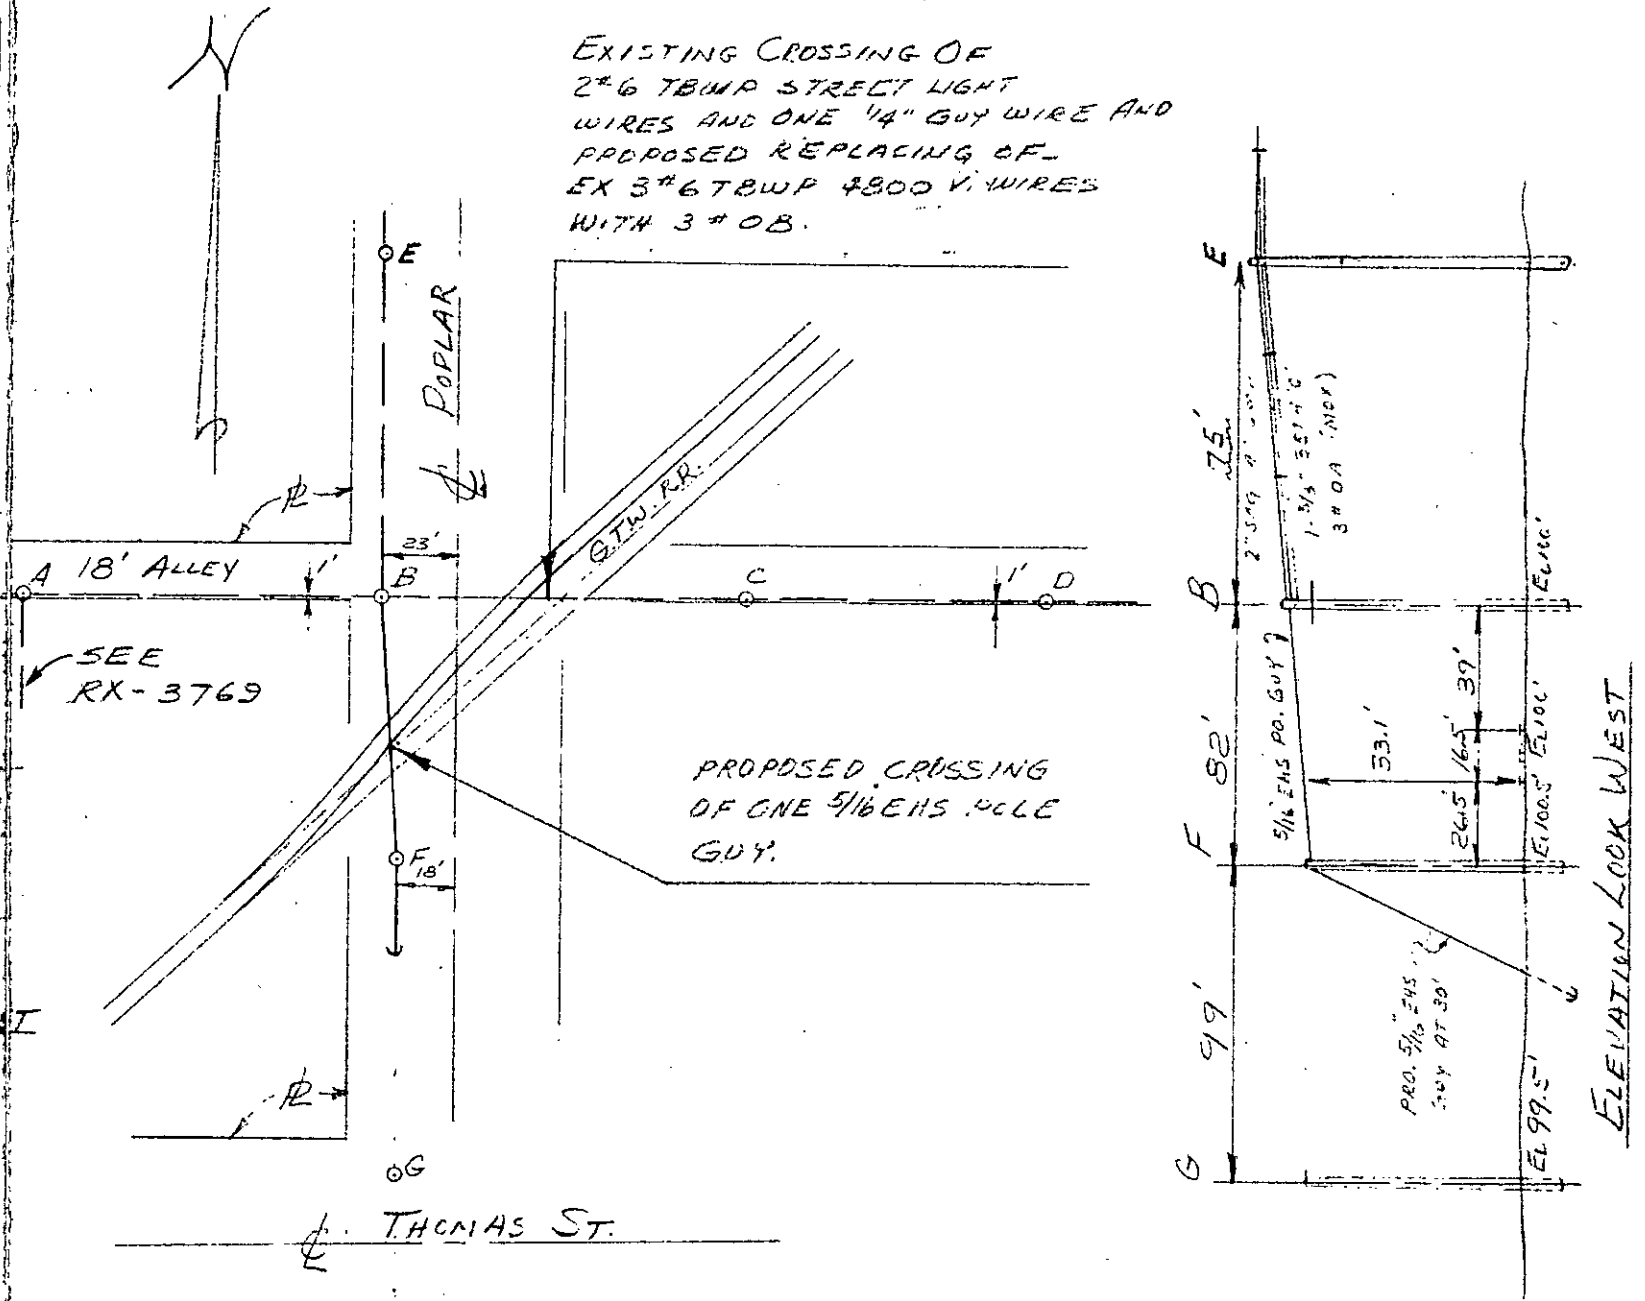 N
EXISTING CROSSING OF
2#6 TBWP STREET LIGHT
WIRES AND ONE 1/4" GUY WIRE AND
PROPOSED REPLACING OF
EX 3#6 TBWP 4800 V. WIRES
WITH 3 # 0B.
E
POPLAR
℄
G.T.W. R.R.
PL
23'
A
18' ALLEY
1'
B
C
1'
D
SEE
RX-3769
PROPOSED CROSSING
OF ONE 5/16 EHS POLE
GUY.
F
18'
I
PL
S
G
℄ THOMAS ST.
E
75'
B
82'
F
99'
G
3 # 0A
5/16" EHS PO. GUY
33.1'
39'
16.5'
26.5'
EL 100'
EL 100'
EL 100.5'
EL 99.5'
PRO. 5/16" EHS
GUY AT 30'
ELEVATION LOOK WEST